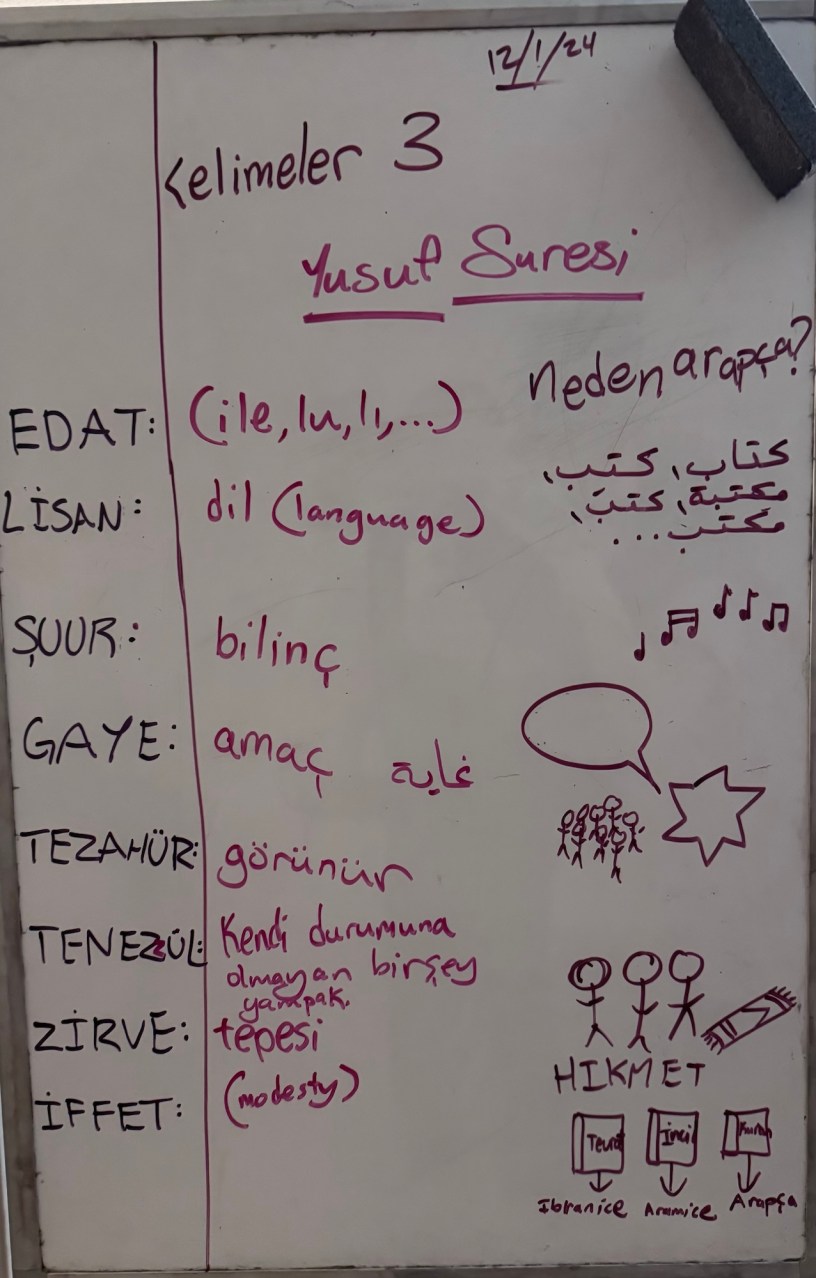 12/1/24
Kelimeler 3
Yusuf Suresi
neden arapça?
EDAT: (ile, lu, lı,...)
كتاب، كتب،
مكتبة، كتب،
مكتب...
LİSAN: dil (language)
ŞUUR: bilinç
GAYE: amaç غاية
TEZAHÜR: görünür
TENEZÜL: Kendi durumuna
olmayan birşey
yampak.
ZİRVE: tepesi
İFFET: (modesty)
HIKMET
Tevrat İncil Kuran
Ibranice Aramice Arapça